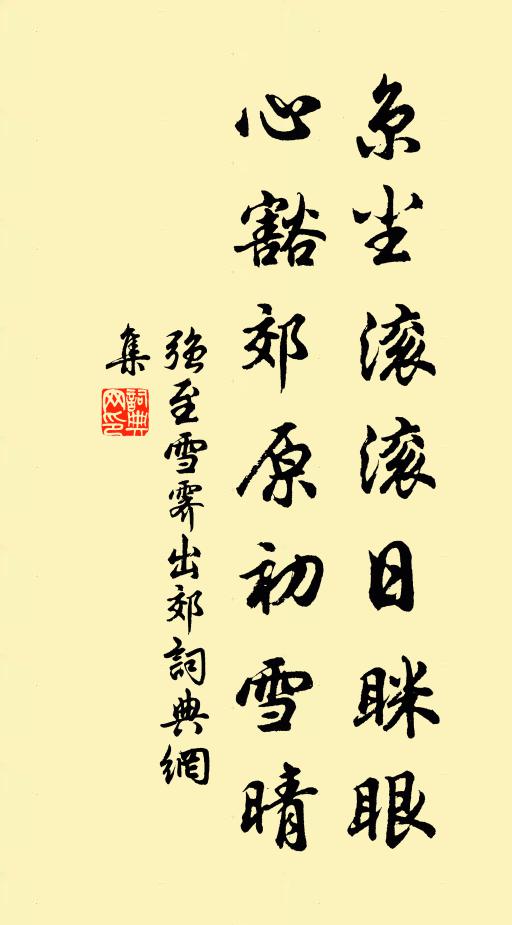 京尘滚滚日眯眼
心豁郊原初雪晴
强至雪霁出郊詞典網
集
詞典
网印